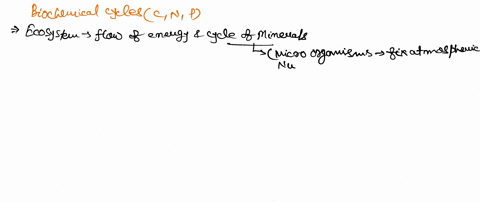 Biochemical cycles (C, N, P)
⇒ Ecosystem → flow of energy & cycle of Minerals
↳ (Micro organisms → fix atmospheric
Nu